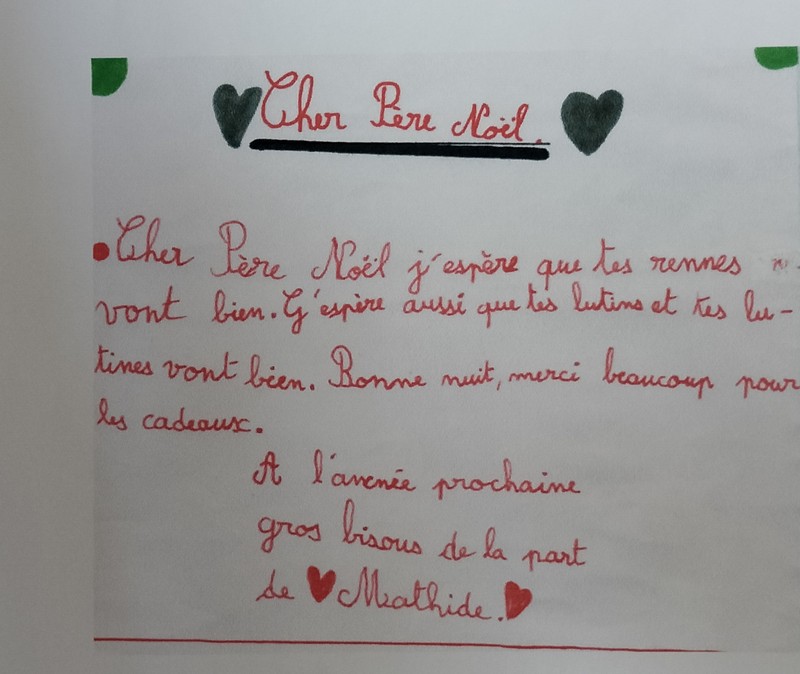 Cher Père Noël.
Cher Père Noël j'espère que tes rennes
vont bien. J'espère aussi que tes lutins et tes lu-
tines vont bien. Bonne nuit, merci beaucoup pour
les cadeaux.
A l'année prochaine
gros bisous de la part
de Mathide.